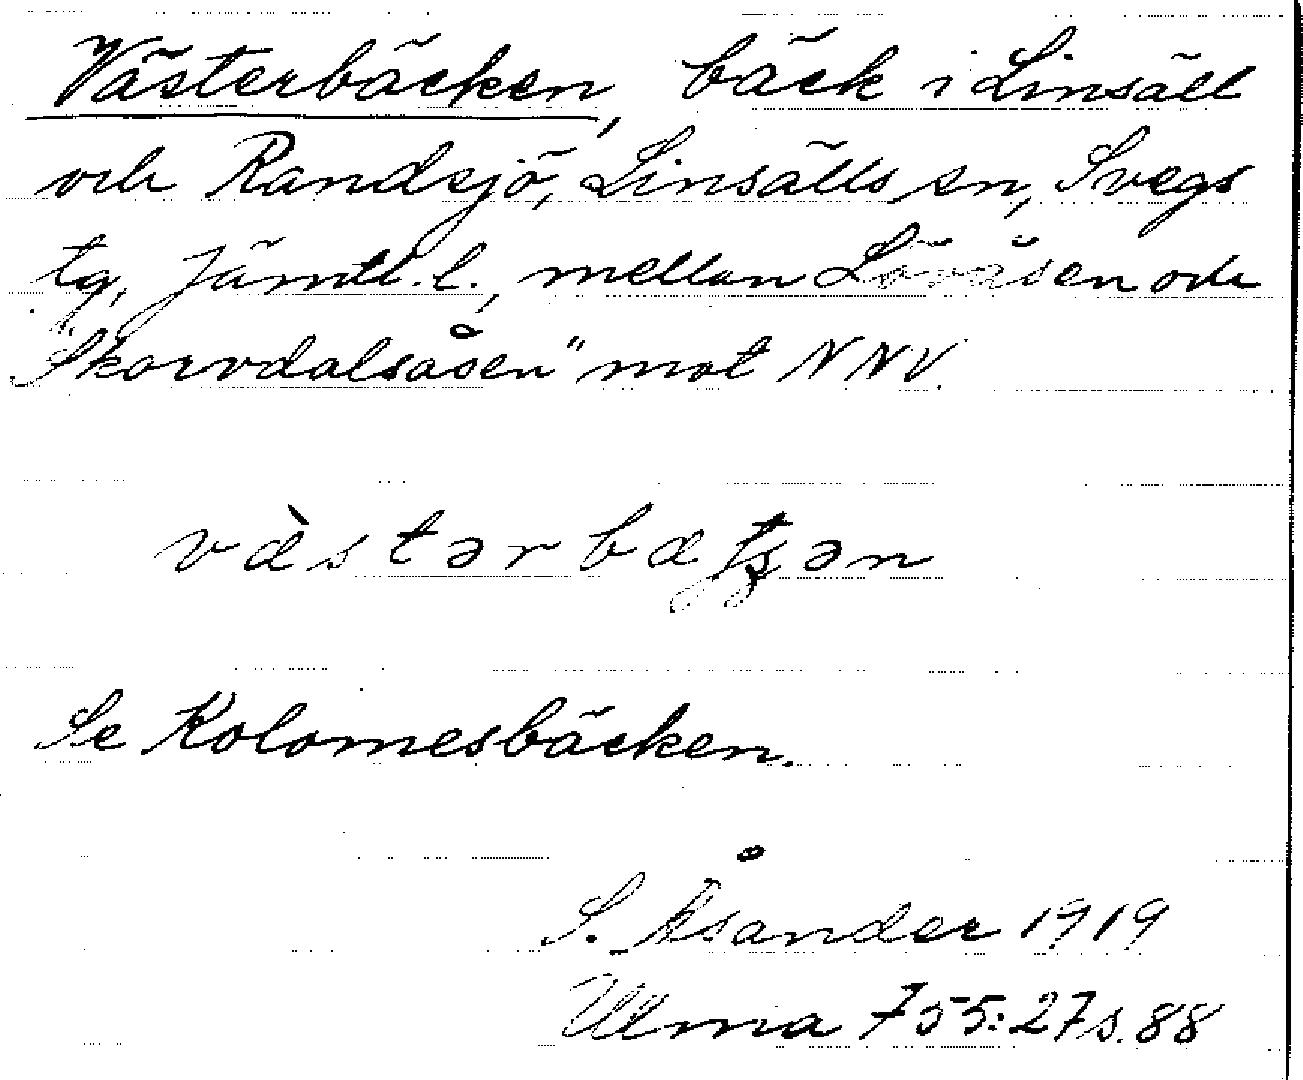 Västerbäcken, bäck i Linsäll
och Randsjö, Linsälls sn, Svegs
tg, Jämtl. l., mellan Lövåsen och
"Skorvdalsåsen" mot NNV.
vàstərbætʂən
Se Kolomesbäcken.
S. Åsander 1919
Ulma 755:27 s. 88